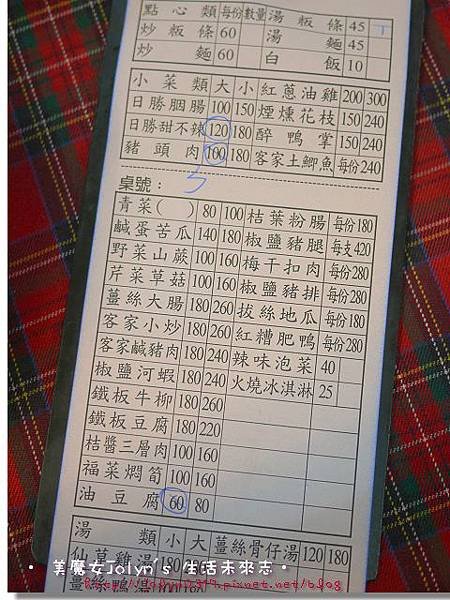 點心類 每份 數量 湯粄條 45
炒粄條 60 湯麵 45
炒麵 60 白飯 10
小菜類 大 小 紅蔥油雞 200 300
日勝胭腸 100 150 煙燻花枝 150 240
日勝甜不辣 120 180 醉鴨掌 150 240
豬頭肉 100 180 客家土鯽魚 每份240
桌號:
青菜( ) 80 100 桔葉粉腸 每份180
鹹蛋苦瓜 140 180 椒鹽豬腿 每支420
野菜山蕨 100 160 梅干扣肉 每份280
芹菜草菇 100 160 椒鹽豬排 每份280
薑絲大腸 180 260 拔絲地瓜 每份180
客家小炒 180 260 紅糟肥鴨 每份280
客家鹹豬肉 180 240 辣味泡菜 40
椒鹽河蝦 180 240 火燒冰淇淋 25
鐵板牛柳 180 260
鐵板豆腐 180 220
桔醬三層肉 100 160
福菜燜筍 100 160
油豆腐 60 80
湯類 小 大 薑絲骨仔湯 120 180
仙草雞湯 180
• 美魔女Jolyn's 生活未來志 •